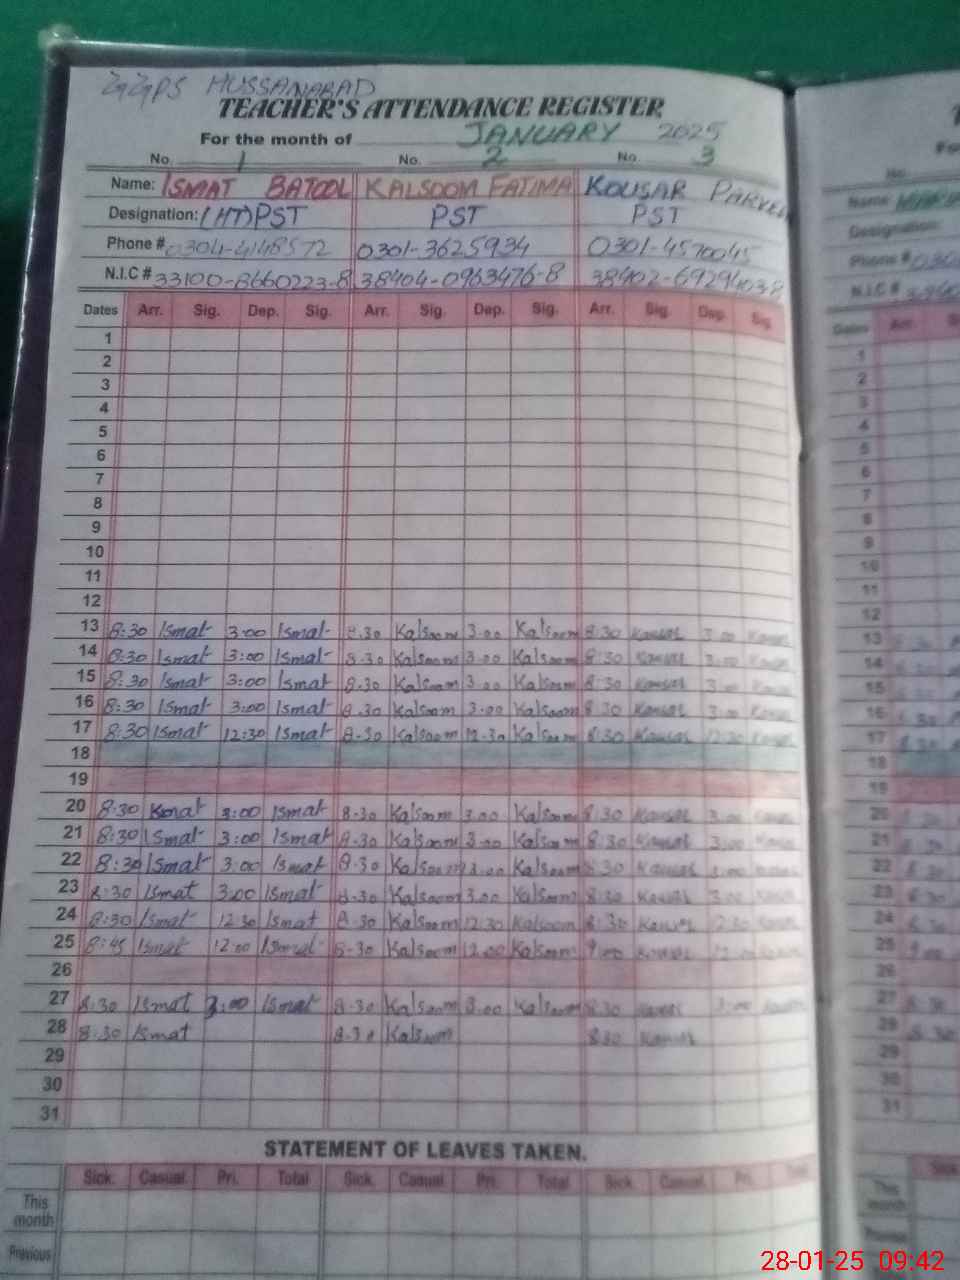 GGPS HUSSANABAD
TEACHER'S ATTENDANCE REGISTER
For the month of JANUARY 2025
No. 1 No. 2 No. 3
Name: ISMAT BATOOL KALSOOM FATIMA KOUSAR PARVEEN
Designation: (HT) PST PST PST
Phone # 0304-4148572 0301-3625934 0301-4570045
N.I.C # 33100-8660223-8 38404-0963476-8 38402-6929403
Dates Arr. Sig. Dep. Sig. Arr. Sig. Dep. Sig. Arr. Sig. Dep. Sig.
1
2
3
4
5
6
7
8
9
10
11
12
13 8:30 Ismat 3:00 Ismat 8.30 Kalsoom 3.00 Kalsoom 8:30 Kousar 3:00 Kousar
14 8:30 Ismat 3:00 Ismat 8.30 Kalsoom 3.00 Kalsoom 8:30 Kousar 3:00 Kousar
15 8:30 Ismat 3:00 Ismat 8.30 Kalsoom 3.00 Kalsoom 8:30 Kousar 3:00 Kousar
16 8:30 Ismat 3:00 Ismat 8.30 Kalsoom 3.00 Kalsoom 8:30 Kousar 3:00 Kousar
17 8:30 Ismat 12:30 Ismat 8.30 Kalsoom 12.30 Kalsoom 8:30 Kousar 12:30 Kousar
18
19
20 8:30 Ismat 3:00 Ismat 8.30 Kalsoom 3.00 Kalsoom 8:30 Kousar 3:00 Kousar
21 8:30 Ismat 3:00 Ismat 8.30 Kalsoom 3.00 Kalsoom 8:30 Kousar 3:00 Kousar
22 8:30 Ismat 3:00 Ismat 8.30 Kalsoom 3.00 Kalsoom 8:30 Kousar 3:00
23 8:30 Ismat 3:00 Ismat 8.30 Kalsoom 3.00 Kalsoom 8:30 Kousar 3:00 Kousar
24 8:30 Ismat 12:30 Ismat 8.30 Kalsoom 12.30 Kalsoom 8:30 Kousar 12:30 Kousar
25 8:45 Ismat 12:00 Ismat 8.30 Kalsoom 12.00 Kalsoom 9:00 Kousar 12:00 Kousar
26
27 8:30 Ismat 3:00 Ismat 8.30 Kalsoom 3.00 Kalsoom 8:30 Kousar 3:00 Kousar
28 8:30 Ismat 8.30 Kalsoom 8:30 Kousar
29
30
31
STATEMENT OF LEAVES TAKEN.
Sick. Casual. Pri. Total Sick. Casual. Pri. Total Sick. Casual. Pri. Total
This month
Previous
28-01-25 09:42